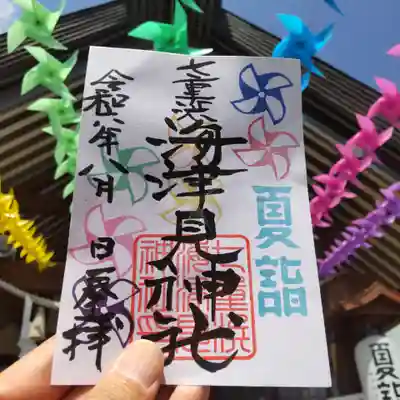 夏詣
七重浜
海津見神社
令和六年八月 日 夏拝
夏詣